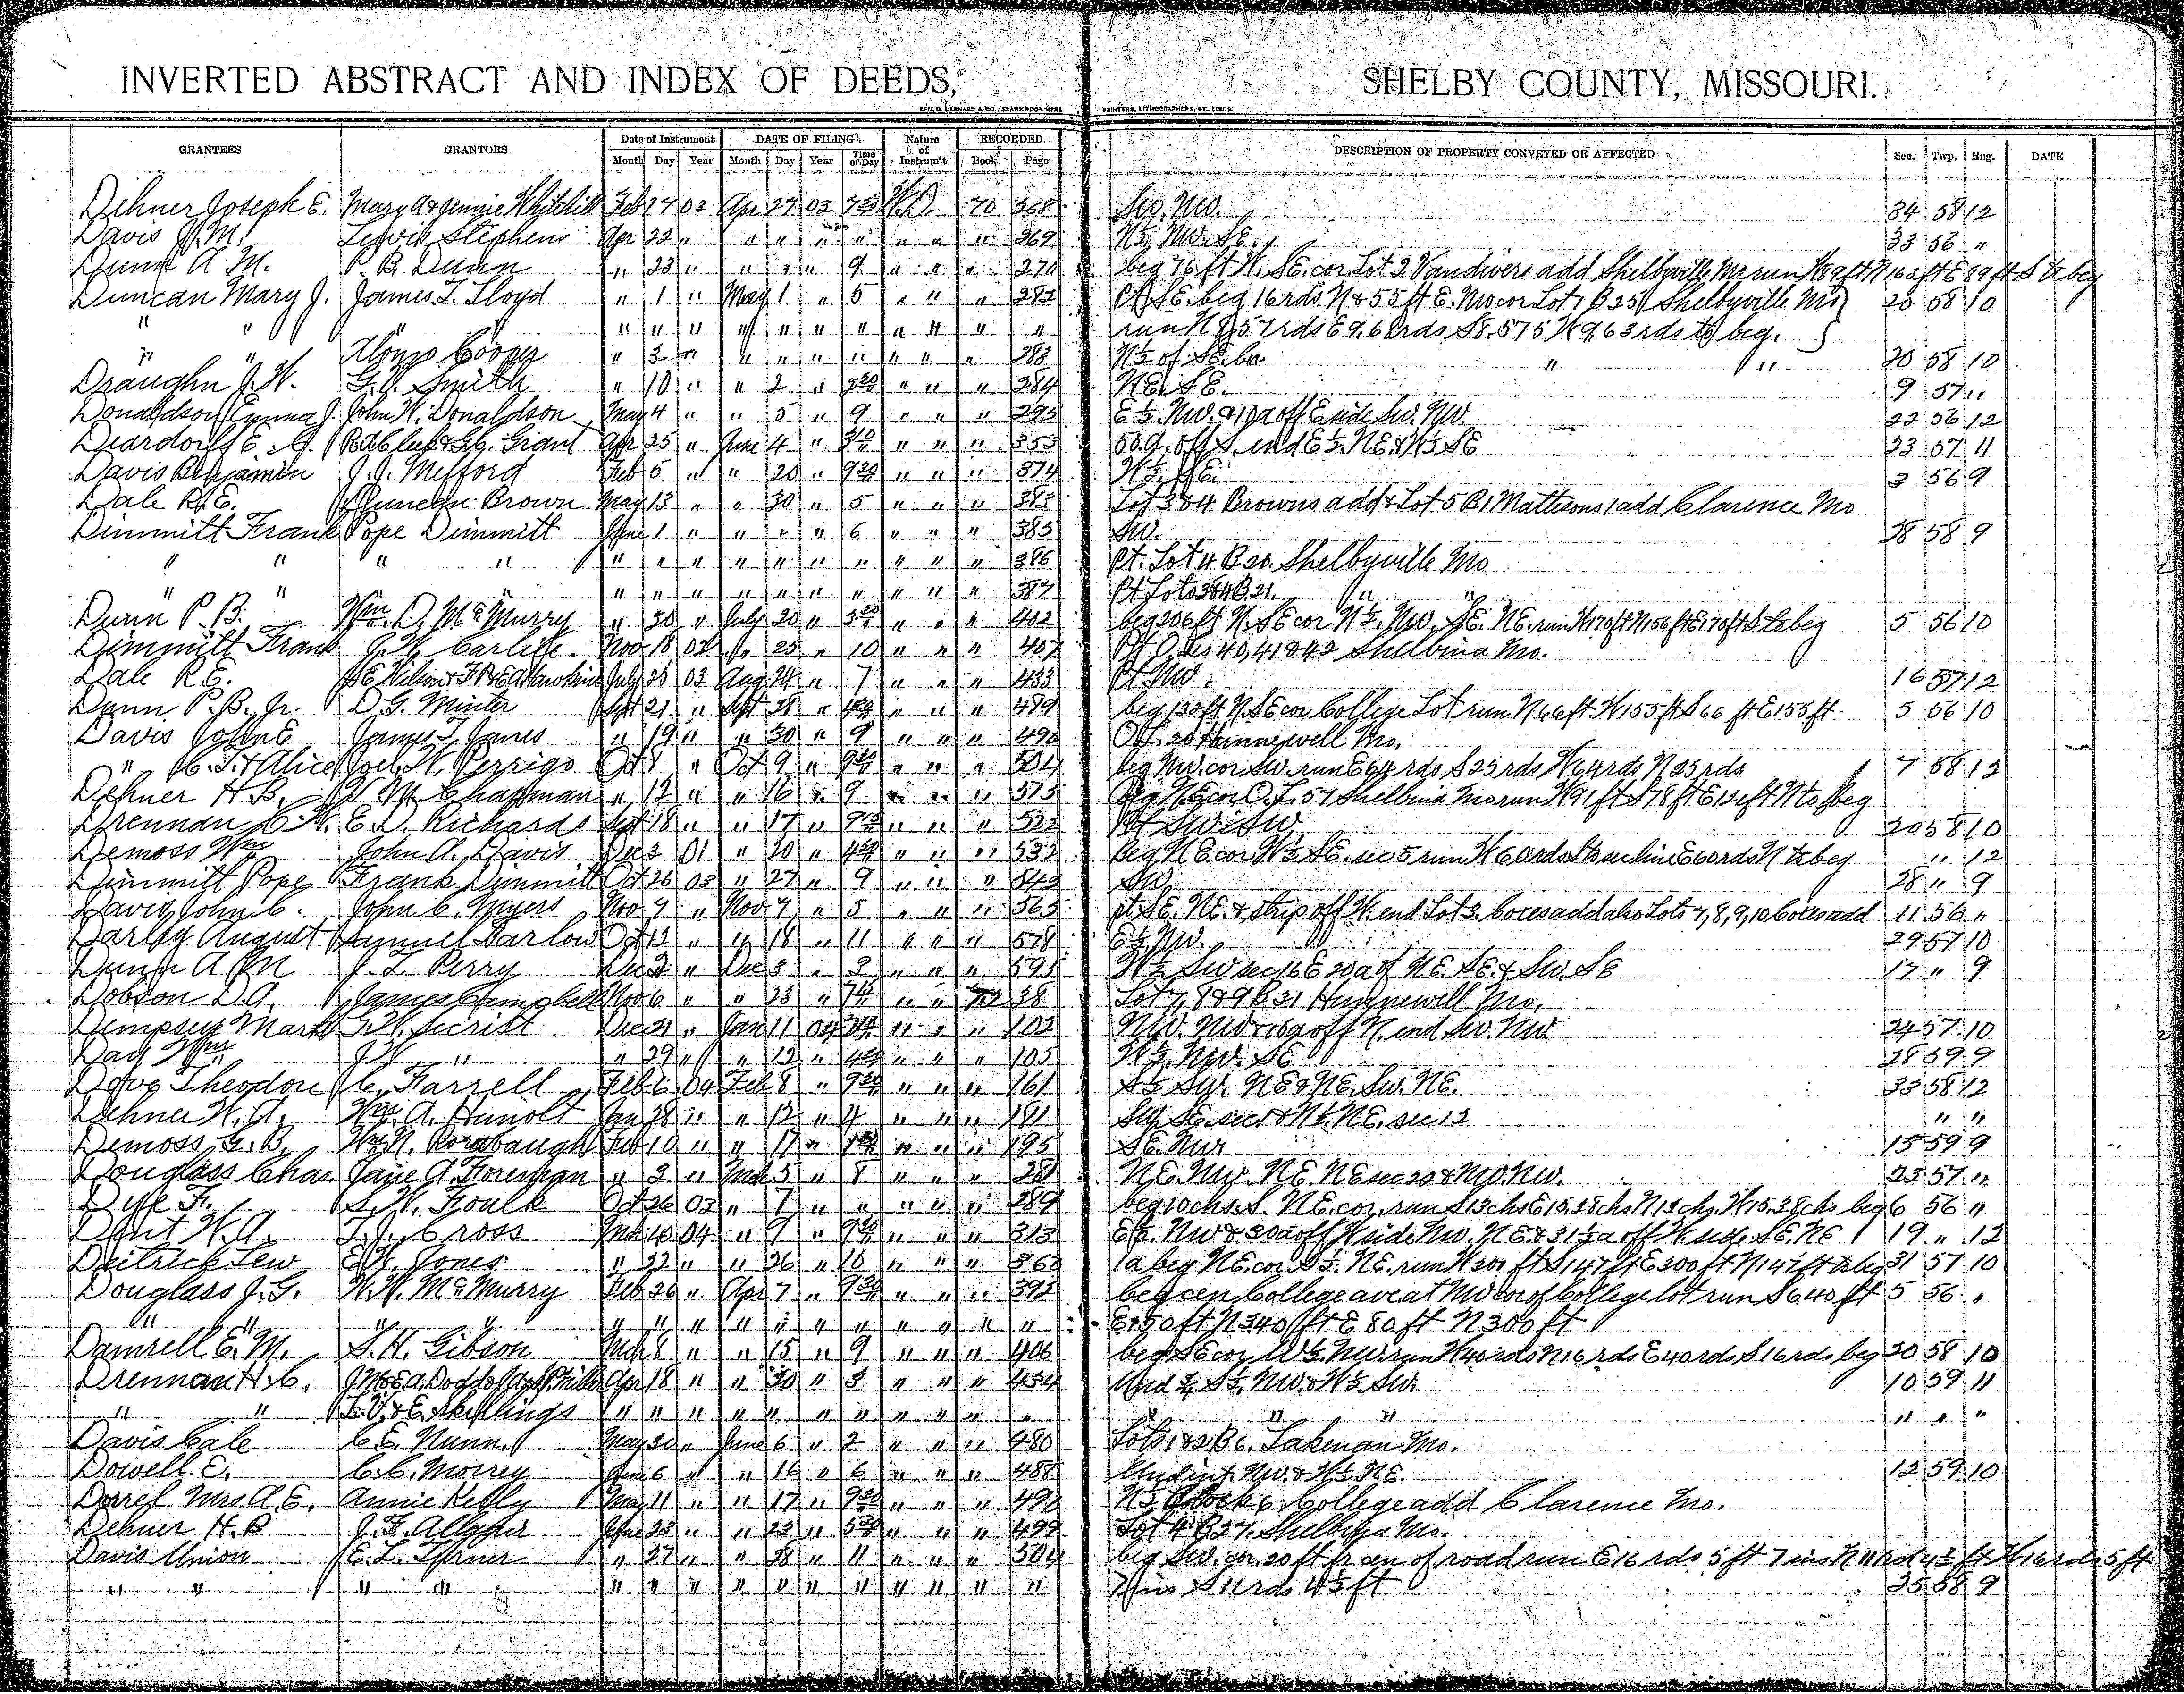 INVERTED ABSTRACT AND INDEX OF DEEDS, SHELBY COUNTY, MISSOURI.
GEO. D. BARNARD & CO., BLANK BOOK MFRS PRINTERS, LITHOGRAPHERS, ST. LOUIS.
GRANTEES GRANTORS Date of Instrument DATE OF FILING Nature of Instrum't RECORDED DESCRIPTION OF PROPERTY CONVEYED OR AFFECTED Sec. Twp. Rng. DATE
Month Day Year Month Day Year Time of Day Book Page
Dehner Joseph E. Mary A & Jennie Whitehill Feb 17 03 Apr 27 03 7 30 W.D. 70 268 SW. NW. 34 58 12
Davis J.M. Lewis Stephens Apr 22 " " " " " " " " 269 N½ NW. SE. 33 56 "
Dunn A M. P. B. Dunn " 23 " " " " 9 " " " 270 beg 76 ft W. SE. cor Lot 2 Vandivers add Shelbyville Mo run W 89 ft N 163 ft E 89 ft S to beg
Duncan Mary J. James T. Lloyd " 1 " May 1 " 5 " " " 282 Pt SE. beg 16 rds N & 55 ft E. NW cor Lot 1 B 25 Shelbyville Mo 20 58 10
" " " " " " " " " " " " " " " run N 8.57 rds E 9.63 rds S 8.575 W 9.63 rds to beg.
" " Alonzo Cooper " 3 " " " " " " " " 283 N½ of SE. " " 20 58 10
Draughn J.W. G.V. Smith " 10 " " 2 " " " " 284 NE. SE. 9 57 "
Donaldson Emma J. John W. Donaldson May 4 " " 5 " 9 " " " 295 E½. NW. & 10a off E side SW. NW. 22 56 12
Deardorff E. G. Grant Apr 25 " June 4 " 3 10 " " " 353 off S. end E½. NE. & W½ SE 23 57 11
Davis Benjamin J.J. Mefford Feb 5 " " 20 " 9 30 " " " 374 W½. SE. 3 56 9
Dale R.E. Duncan Brown May 13 " " 30 " 5 " " " 383 Lot 3 & 4 Browns add & Lot 5 B 1 Mattesons 1 add Clarence Mo
Dimmitt Frank Pope Dimmitt June 1 " " " " 6 " " " 385 SW. 28 58 9
" " " " " " " " " " " " " " 386 Pt. Lot 4 B 20. Shelbyville Mo
" " " " " " " " " " " 387 Pt Lots 3 & 4 B. 21. " "
Dunn P.B. Wm. D. McMurry " 30 " July 20 " " " " 402 beg 206 ft N. SE cor N½. NW. SE. NE. run W 170 ft N 156 ft E 170 ft S to beg 5 56 10
Dimmitt Frank J.W. Carlile. Nov 18 02 " 25 " 10 " " " 407 Pt O. Ls 40, 41 & 42 Shelbina Mo.
Dale R.E. July 25 03 Aug 24 " 7 " " " 433 Pt NW. 16 57 12
Dunn P.B. Jr. D.G. Minter Sept 21 " Sept 28 " " " " 489 beg 132 ft N. SE cor College Lot run N 66 ft. W 155 ft S 66 ft E 155 ft. 5 56 10
Davis John E James T. Janes " 19 " " 30 " 9 " " " 490 O.L. 20 Hunnewell Mo.
" C.T. & Alice Joel W. Perrigo Oct 1 " Oct 9 " 9 30 " " " 504 beg NW. cor SW. run E 64 rds. S 25 rds W 64 rds N 25 rds 7 58 12
Dehner H.B. M. Chapman " 12 " " 16 " 9 " " " 515 Beg NE cor O.L. 57 Shelbina Mo run W 91 ft S 78 ft E ft N to beg
Drennan C.W. E.D. Richards Sept 18 " " 17 " " " " 522 Pt SW. SW 20 58 10
Demoss Wm John A. Davis Dec 3 01 " 20 " " " " 532 Beg NE cor W½. SE. sec 5 run W 60 rds S to sec line E 60 rds N to beg " 12
Dimmitt Pope Frank Dimmitt Oct 26 03 " 27 " 9 " " " 549 SW 28 " 9
Davis John C. John C. Myers Nov 7 " Nov 7 " 5 " " " 565 pt SE. NE. & strip off W. end Lot 3. Coxes add also Lots 7, 8, 9, 10 Coxes add 11 56 "
Darley August Samuel Farlow Oct 13 " " 18 " 11 " " " 578 E½. NW. 29 57 10
Dunn A M J. L. Perry Dec 2 " Dec 3 " 2 " " " 595 W½ SW sec 16 E 20 a of NE. SE. & SW. SE 17 " 9
Dobson D.A. James Campbell Nov 6 " " 23 " 7 15 " " 72 38 Lot 7, 8 & 9 B 31 Hunnewell Mo.
Dempsey Mark Dec 21 " Jan 11 04 " " " 102 NW. NW & 16a off N. end SW. NW 24 57 10
Day Wm J.W. " " 29 " " 12 " " " " 105 W½. NW. SE 28 59 9
Theodore C. Farrell Feb 6 04 Feb 8 " 9 30 " " " 161 S½ SW. NE & NE. SW. NE. 33 58 12
Dehner W.A. Wm. A. Hunolt Jan 28 " " 12 " 4 " " " 181 SW. SE. sec 1 & N½. NE. sec 12 " "
Demoss G.B. Wm N. Feb 10 " " 17 " " " " 195 SE. NW. 15 59 9
Douglass Chas. Jane A. Foreman " 2 " Mch 5 " 8 " " " 281 NE. NW. NE. NE sec 22 & NW. NW. 23 57 "
Dye F. S.W. Foulk Oct 26 03 " 7 " " " " " 289 beg 10 chs. S. NE. cor. run S 13 chs E 15.38 chs N 13 chs. W 15.38 chs beg 6 56 "
Dent W.A. T.J. Cross Mch 10 04 " 9 " 9 30 " " " 313 E½. NW & 30a off W side NW. NE & 31½ a off W side SE. NE 19 " 12
Deitrick Lew E.W. Jones " 22 " " 26 " 10 " " " 362 1a beg NE. cor S½. NE. run W 300 ft S 147 ft E 300 ft N 147 ft to beg 31 57 10
Douglass J.G. W.W. McMurry Feb 26 " Apr 7 " 9 30 " " " 392 beg cen College ave at NW cor of College lot run S 640 ft 5 56 "
" " " " " " " " " " " " " " " E 150 ft N 340 ft E 80 ft N 300 ft
Damrell E.M. S.H. Gibson Mch 8 " " 15 " 9 " " " 406 beg SE cor W½. NW. run W 40 rds N 16 rds E 40 rds S 16 rds beg 20 58 10
Drennan H.C. Apr 18 " " 30 " 3 " " " 454 Und ¾ S½. NW. & N½. SW. 10 59 11
" " L.V. & E. Skillings " " " " " " " " " " " " " " " " "
Davis Cale C.E. Nunn. May 30 " June 6 " 2 " " " 480 Lots 1 & 2 B 6. Lakenan Mo.
Dowell E. C.C. Morrey June 6 " " 16 " 6 " " " 488 Und int. NW. & W½ NE. 12 59 10
Dorrel Mrs A.E. Annie Kelly May 11 " " 17 " 9 30 " " " 490 N½ Block 6 College add Clarence Mo.
Dehner H.B J.F. Allgair June 23 " " 23 " 5 30 " " " 499 Lot 4 B 27. Shelbina Mo.
Davis Union E.L. Turner " 27 " " 28 " 11 " " " 504 beg SW. cor. 20 ft fr cen of road run E 16 rds 5 ft 7 ins N 11 rds 4½ ft W 16 rds 5 ft
" " " " " " " " " " " " " " " 7 ins S 11 rds 4½ ft 35 58 9